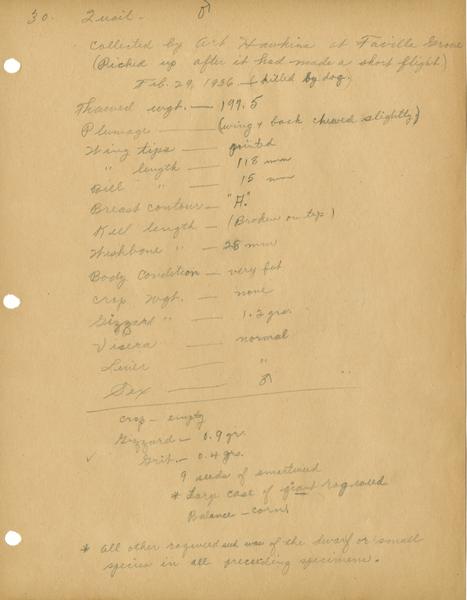 30. Quail. ♂
Collected by Art Hawkins at Faville Grove
(Picked up after it had made a short flight)
Feb. 29, 1936 & killed by dog.
Thawed wgt. — 199.5
Plumage — (wing & back chewed slightly)
Wing tips — pointed
" length — 118 mm
Bill " — 15 mm
Breast contour — "A."
Keel length — (Broken on tip)
Wishbone " — 28 mm
Body Condition — very fat
Crop wgt. — none
Gizzard " — 1.3 grs.
Visera — normal
Liver — "
Sex — ♂
Crop — empty
Gizzard — 0.9 gr.
✓ Grit. — 0.4 grs.
9 seeds of smartweed
* Large case of giant ragweed
Balance — corn
* All other ragweed seed was of the dwarf or small
species in all preceeding specimens.